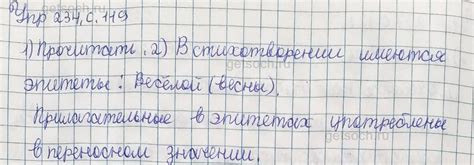 Упр 234, с. 119
1) Прочитать. 2) В стихотворении имеются
эпитеты: Весёлой (весны).
Прилагательные в эпитетах употреблены
в переносном значении.